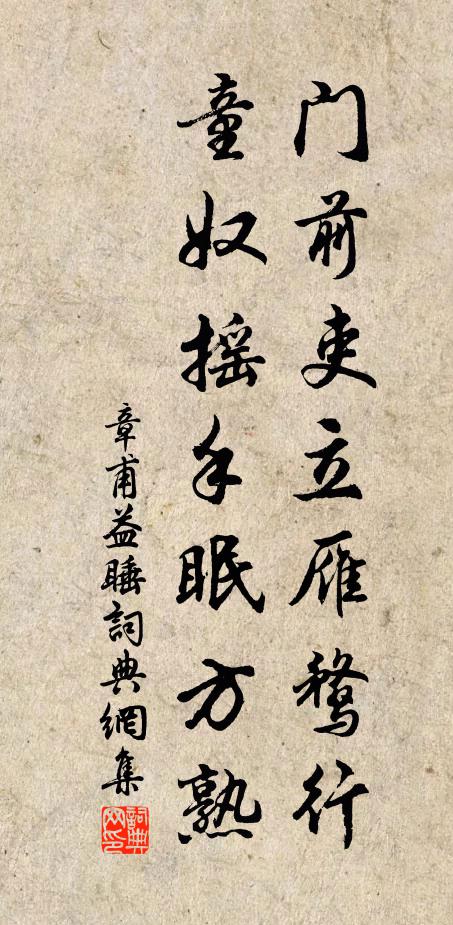 门前吏立雁鹜行
童奴摇手眠方熟
章甫益睡詞典網集
詞典网印